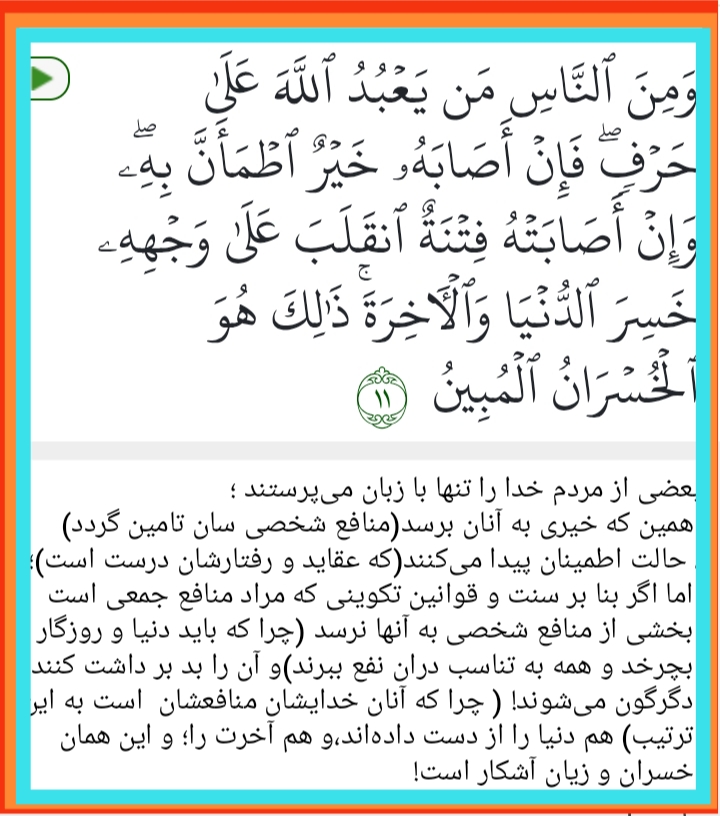 وَمِنَ ٱلنَّاسِ مَن يَعْبُدُ ٱللَّهَ عَلَىٰ
حَرْفٍۢ ۖ فَإِنْ أَصَابَهُۥ خَيْرٌ ٱطْمَأَنَّ بِهِۦ ۖ
وَإِنْ أَصَابَتْهُ فِتْنَةٌ ٱنقَلَبَ عَلَىٰ وَجْهِهِۦ
خَسِرَ ٱلدُّنْيَا وَٱلْـَٔاخِرَةَ ۚ ذَٰلِكَ هُوَ
ٱلْخُسْرَانُ ٱلْمُبِينُ ١١
بعضی از مردم خدا را تنها با زبان می‌پرستند ؛
همین که خیری به آنان برسد(منافع شخصی سان تامین گردد)
حالت اطمینان پیدا می‌کنند(که عقاید و رفتارشان درست است)؛
اما اگر بنا بر سنت و قوانین تکوینی که مراد منافع جمعی است
بخشی از منافع شخصی به آنها نرسد (چرا که باید دنیا و روزگار
بچرخد و همه به تناسب دران نفع ببرند)و آن را بد بر داشت کنند
دگرگون می‌شوند! ( چرا که آنان خدایشان منافعشان است به این
ترتیب) هم دنیا را از دست داده‌اند،و هم آخرت را؛ و این همان
خسران و زیان آشکار است!